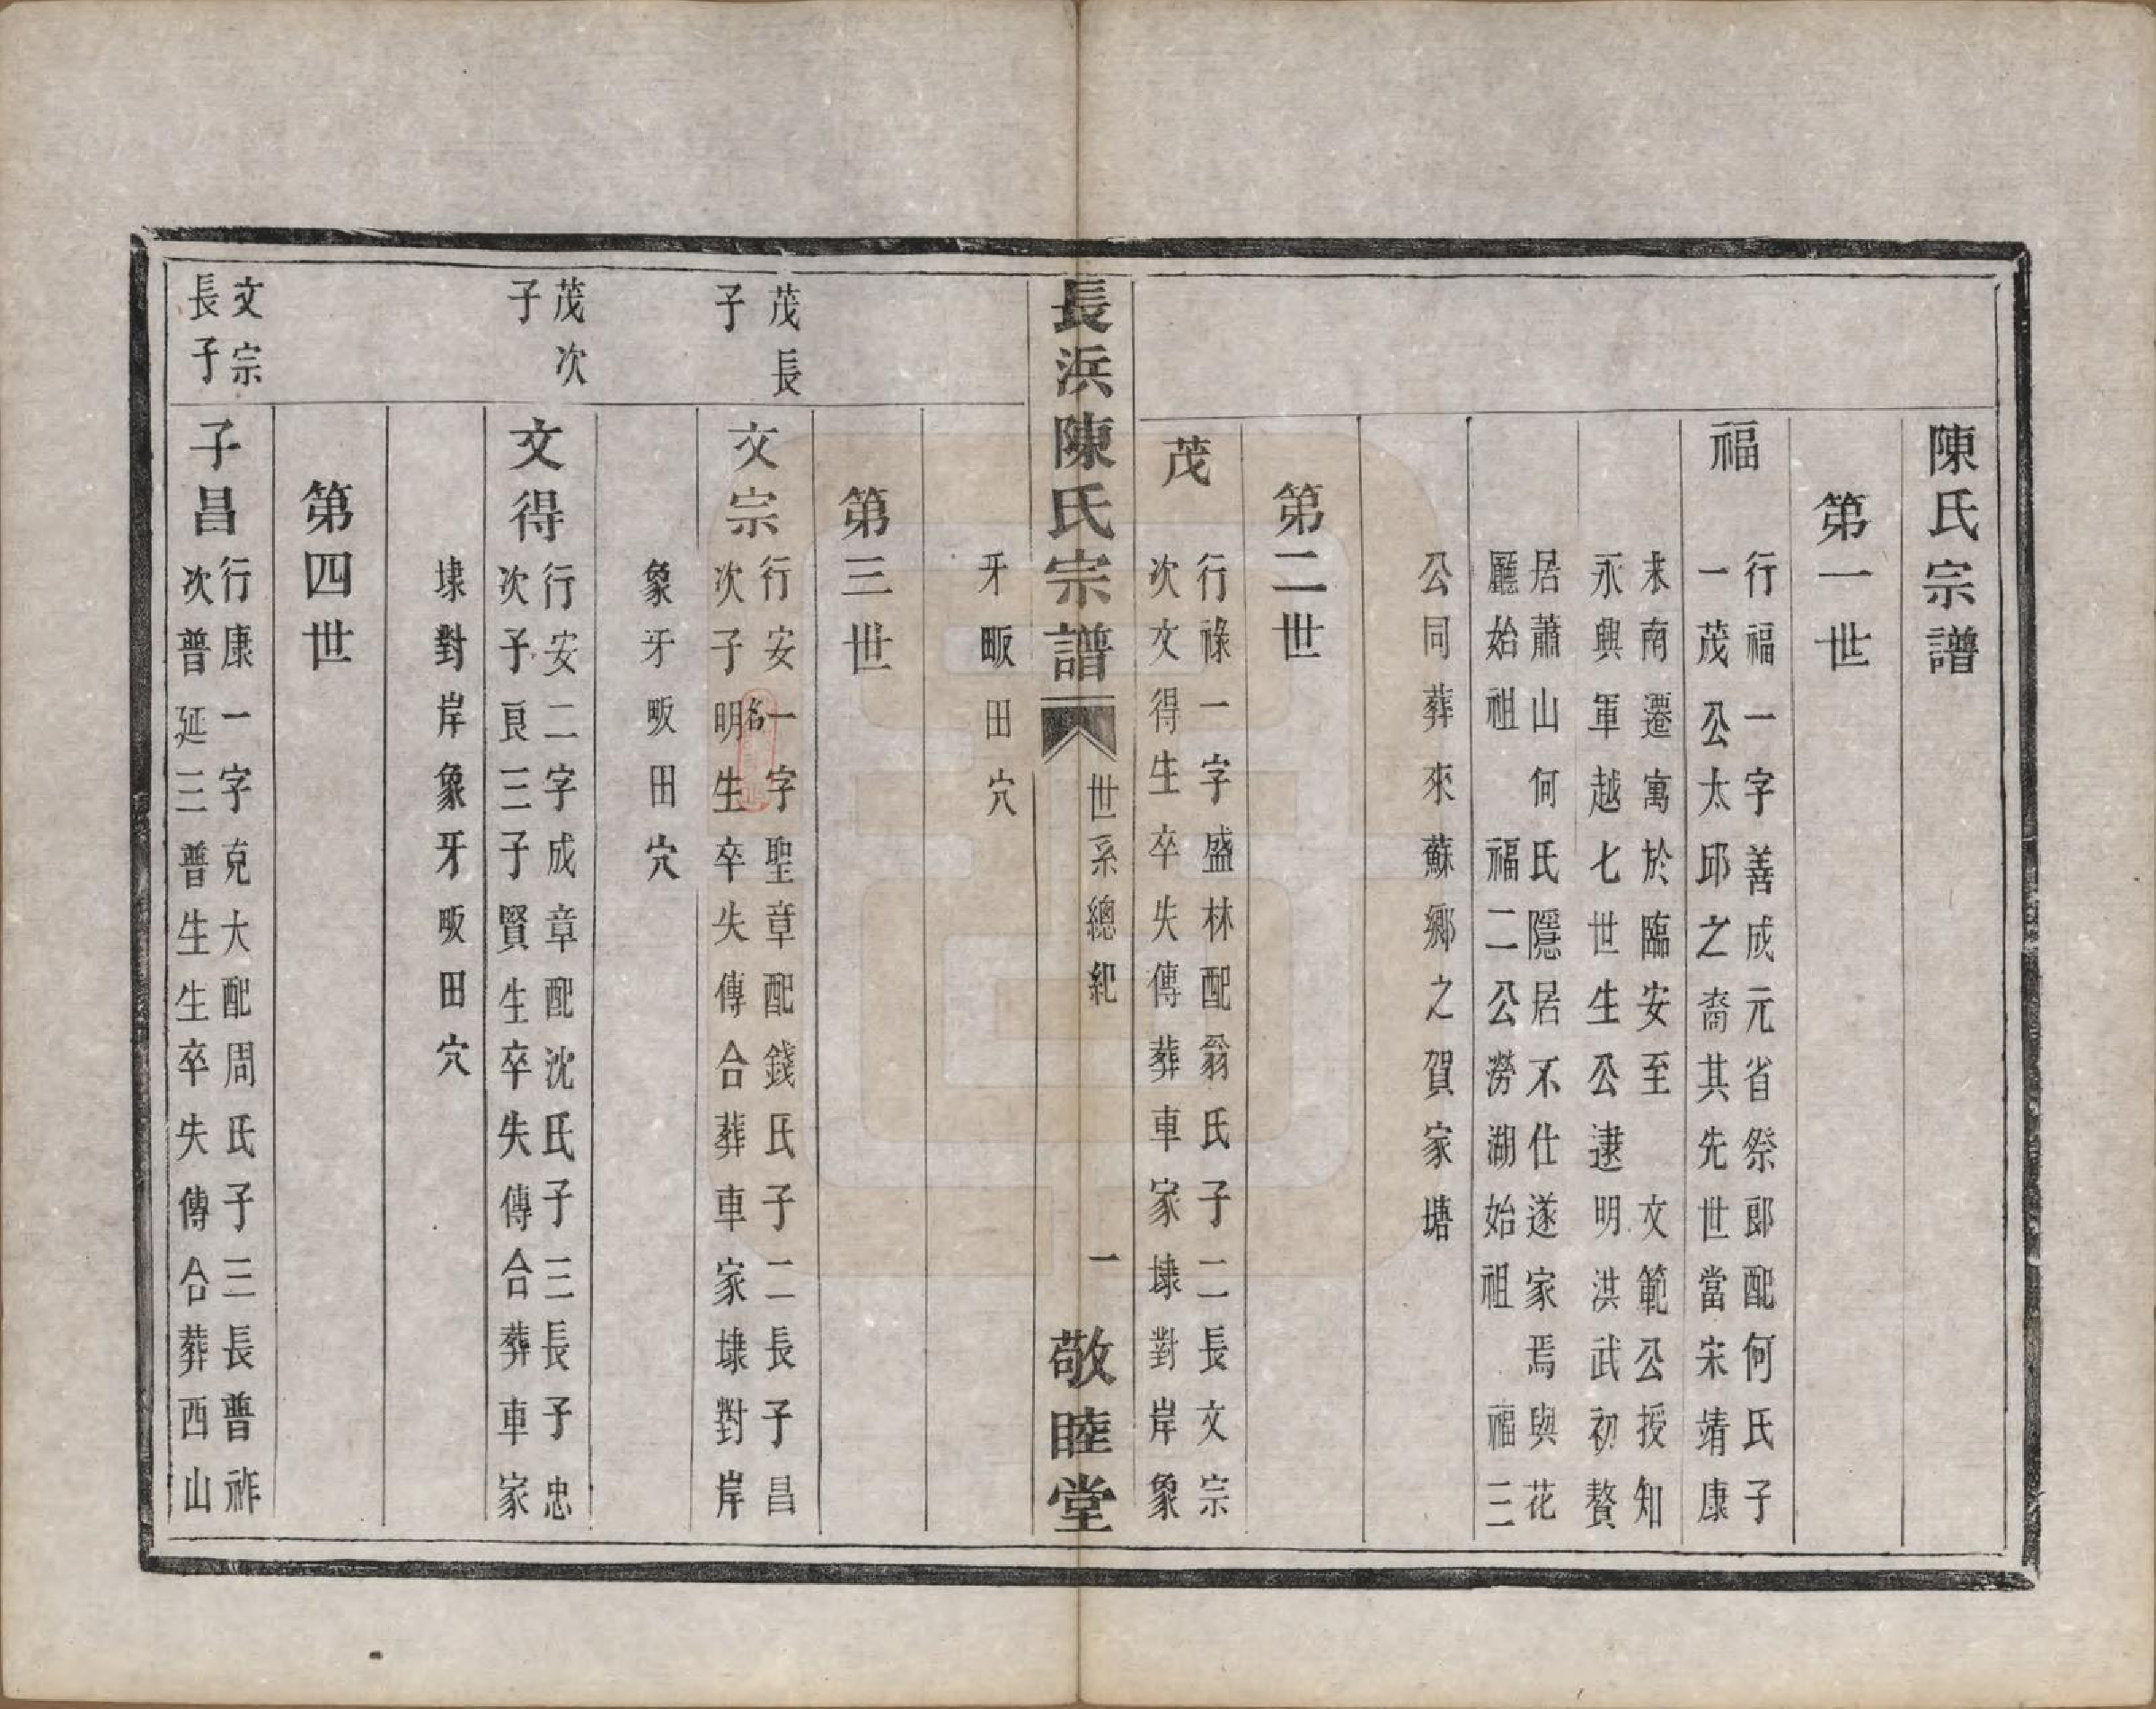 陳氏宗譜
第一世
福
行福一字善成元省祭郎配何氏子
一茂公太邱之裔其先世當宋靖康
末南遷寓於臨安至　文範公授知
永興軍越七世生公逮明洪武初贅
居蕭山何氏隱居不仕遂家焉與花
廳始祖　福二公澇湖始祖　福三
公同葬來蘇鄉之賀家塘
第二世
茂
行祿一字盛林配翁氏子二長文宗
次文得生卒失傳葬車家埭對岸象
牙畈田穴
長浜陳氏宗譜
世系總紀
一
敬睦堂
第三世
茂長
子
文宗
行安一字聖章配錢氏子二長子昌
次子明生卒失傳合葬車家埭對岸
名
象牙畈田穴
茂次
子
文得
行安二字成章配沈氏子三長子忠
次子良三子賢生卒失傳合葬車家
埭對岸象牙畈田穴
第四世
文宗
長子
子昌
行康一字克大配周氏子三長普祚
次普延三普生生卒失傳合葬西山